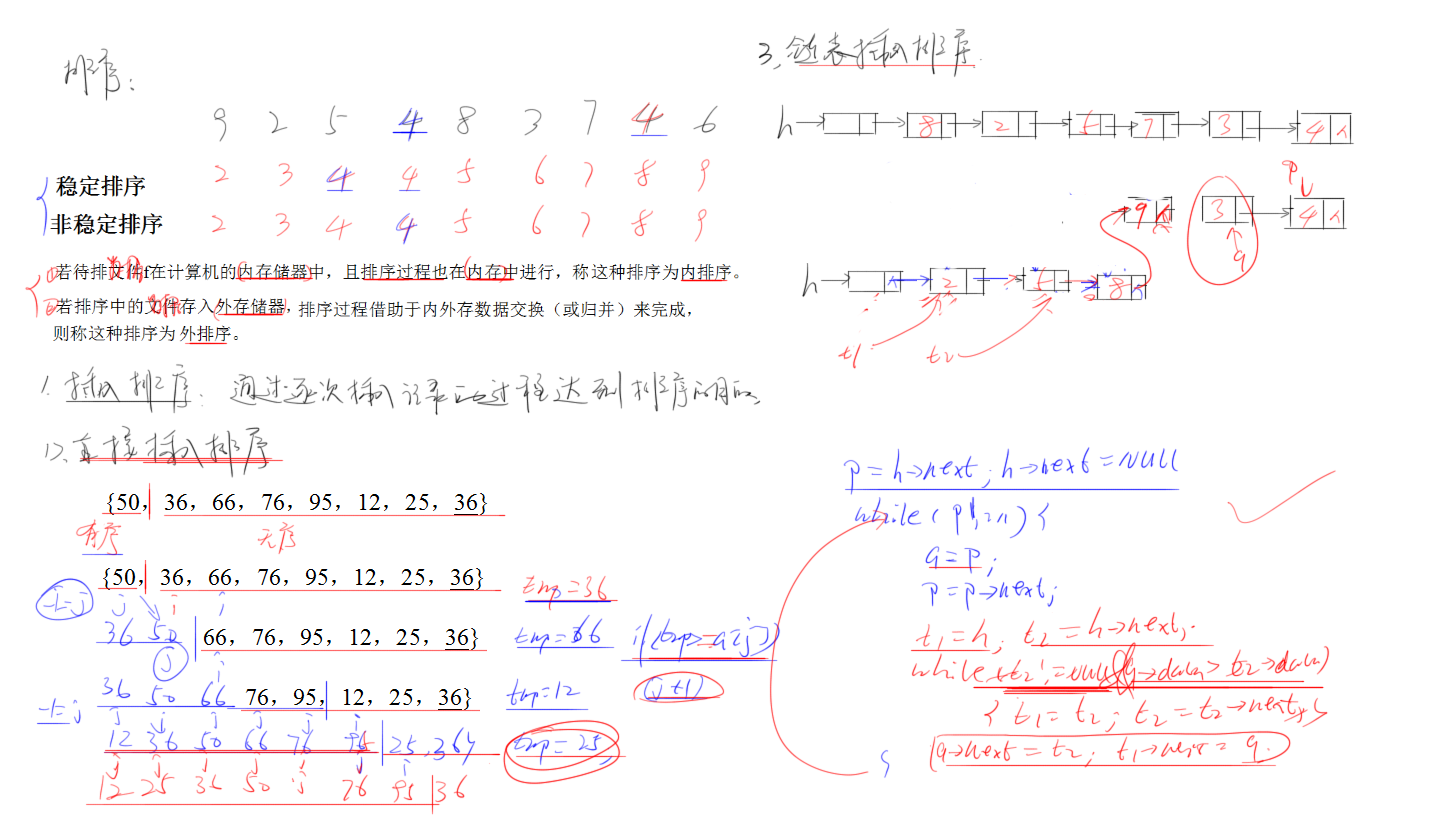 排序：
9 2 5 4 8 3 7 4 6
稳定排序 2 3 4 4 5 6 7 8 9
非稳定排序 2 3 4 4 5 6 7 8 9
① 若待排文件f在计算机的内存储器中，且排序过程也在内存中进行，称这种排序为内排序。
② 若排序中的文件存入外存储器，排序过程借助于内外存数据交换（或归并）来完成，
则称这种排序为 外排序。
1. 插入排序：通过逐次插入记录的过程达到排序的目的。
1>、直接插入排序
{50, 36, 66, 76, 95, 12, 25, 36}
有序 无序
{50, 36, 66, 76, 95, 12, 25, 36} tmp=36
-1=j j i i
36 50 66, 76, 95, 12, 25, 36} tmp=66 if(tmp>=a[j])
j i
36 50 66 76, 95, 12, 25, 36} tmp=12 (j+1)
-1=j j j j j j i
12 36 50 66 76 95 25, 36} tmp=25
j j j j j j i
12 25 36 50 76 95 36
3、链表插入排序.
h 8 2 5 7 3 4 ∧
p
9 ∧ 3 4 ∧
q
h 2 5 8
t1 t2
p=h->next; h->next=NULL
while(p!=n){
q=p;
p=p->next;
t1=h; t2=h->next;
while(t2!=NULL&&q->data>t2->data)
{t1=t2; t2=t2->next;}
q->next=t2; t1->next=q.
}